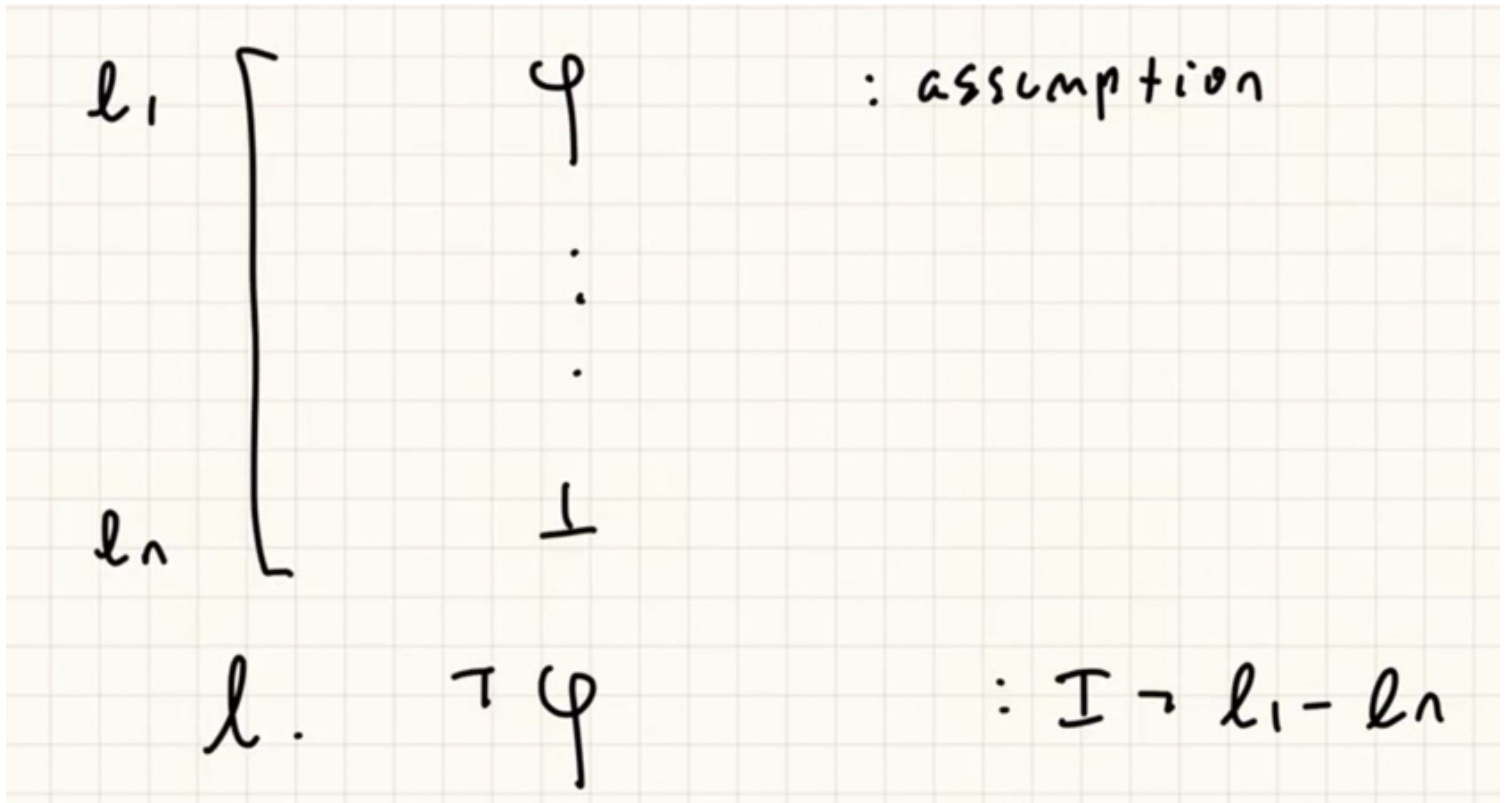 l₁ φ : assumption
⋮
lₙ ⊥
l. ¬φ : I¬ l₁ - lₙ